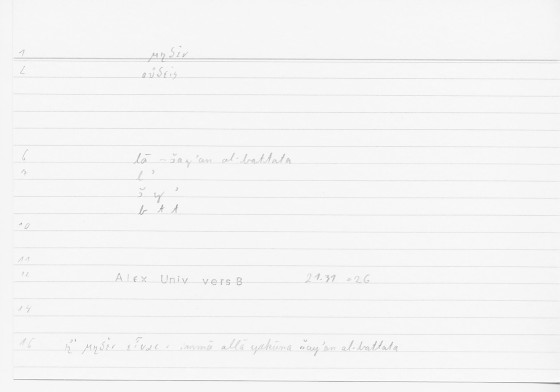 1 μηδέν
2 οὐδείς
6 lā – šay'an al-battata
7 l '
š y '
b t t
10
11
12 Alex Univ vers B 21.31 - 26
14
16 ἢ μηδὲν εἶναι = immā allā yakūna šay'an al-battata